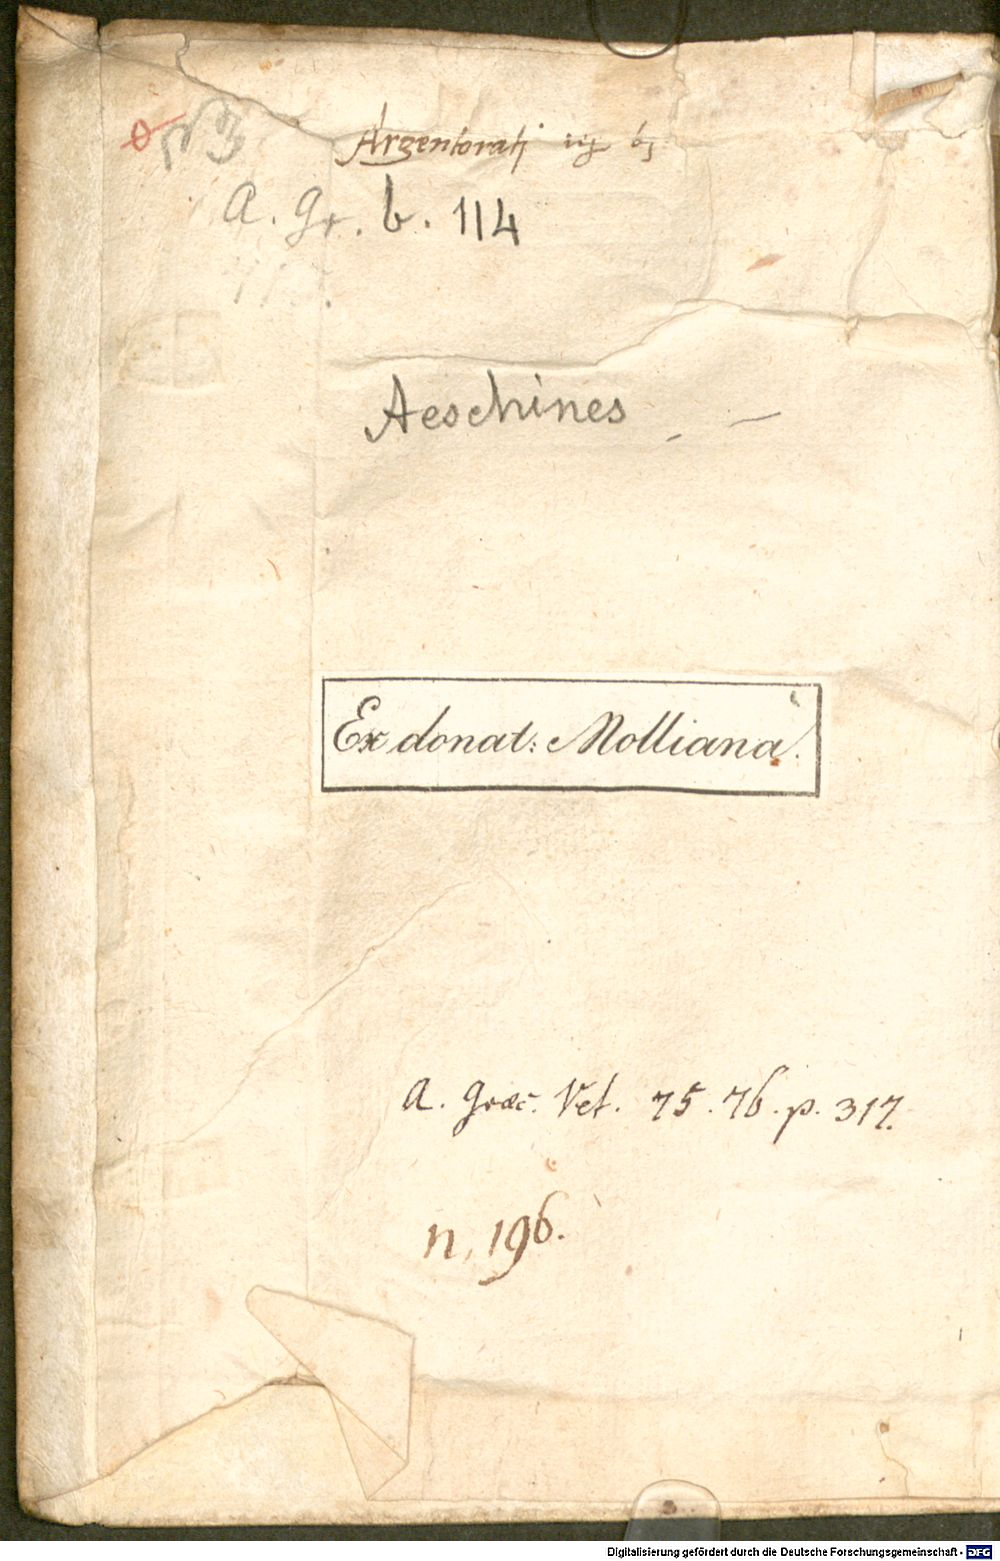 N 3
Argentorati iij bz
A. gr. b. 114
Aeschines
Ex donat: Molliana.
A. Graec. Vet. 75.76. p. 317.
n. 196.
Digitalisierung gefördert durch die Deutsche Forschungsgemeinschaft - DFG